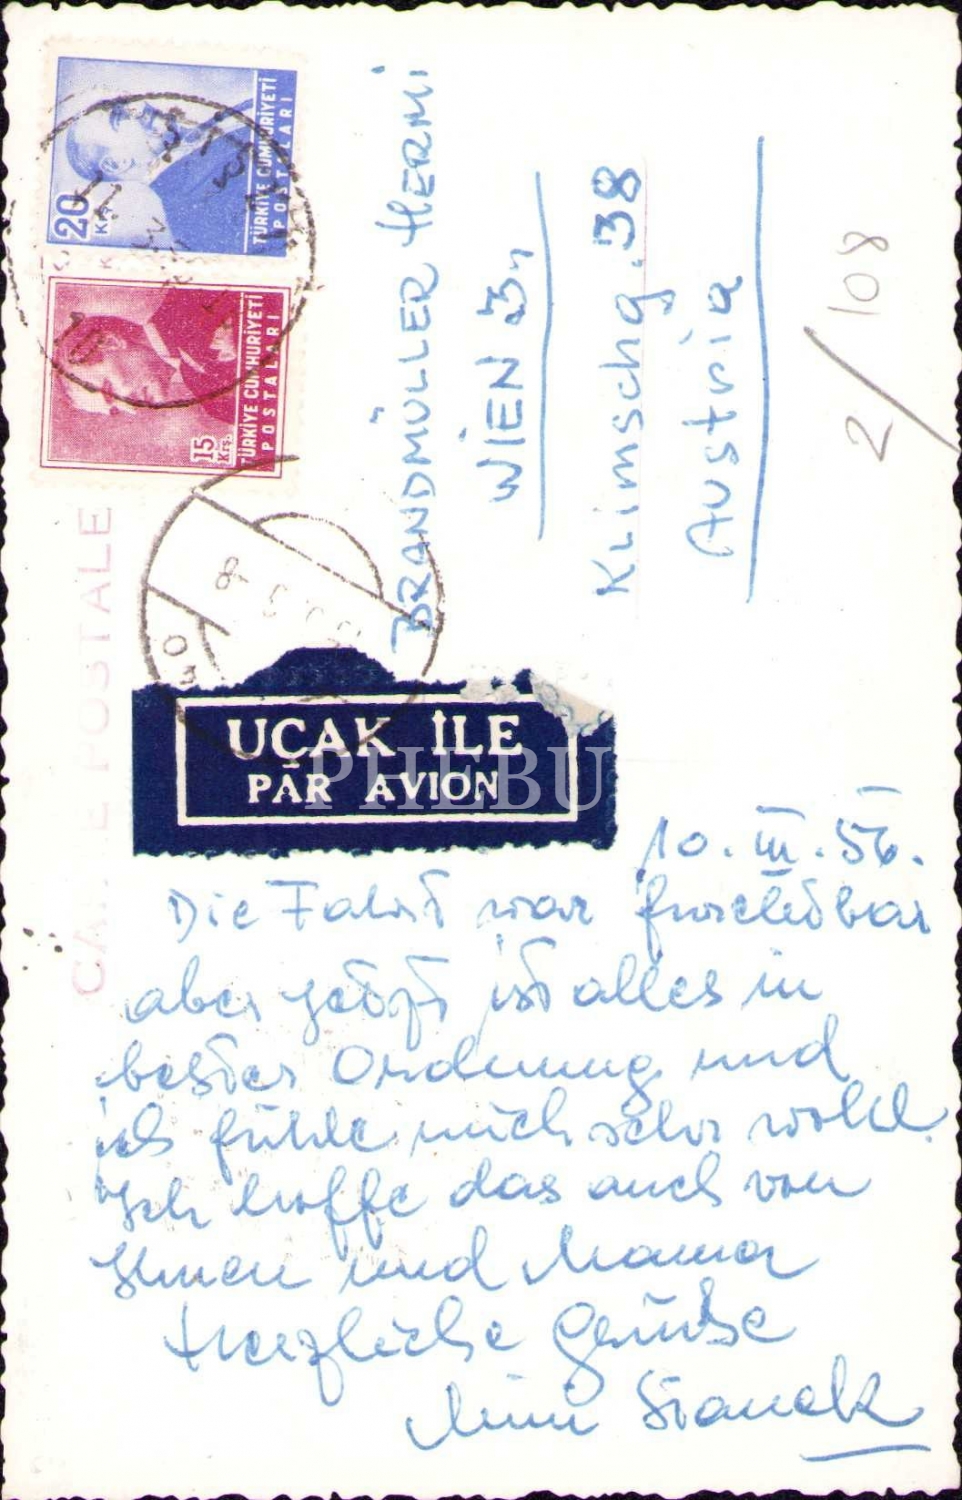 20
Krş.
TÜRKİYE CUMHURİYETİ
POSTALARI
15
Krş.
TÜRKİYE CUMHURİYETİ
POSTALARI
10
CARTE POSTALE
BRANDMÜLLER HERMI
WIEN 3,,
Klimschg. 38
Austria
2/108
UÇAK İLE
PAR AVION
PHEBU
10. III. 56.
Die Fahrt war furchtbar
aber jetzt ist alles in
bester Ordnung und
ich fühle mich sehr wohl.
Ich hoffe das auch von
Ihnen und Mama
Herzliche Grüße
Mimi Stanek